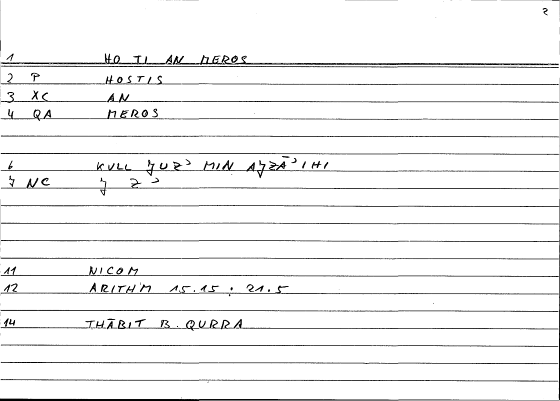 2
1 HO TI AN MEROS
2 P HOSTIS
3 XC AN
4 QA MEROS
6 KULL ǮUZʾ MIN AǮZĀʾIHI
7 NC Ǯ Z ʾ
11 NICOM
12 ARITHM 15.15 : 21.5
14 THĀBIT B. QURRA